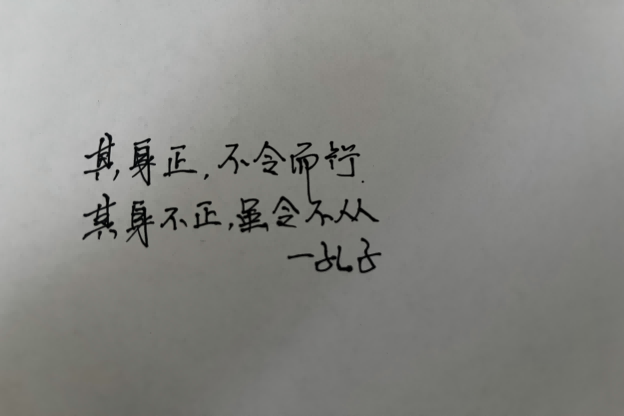 其身正,不令而行.
其身不正,虽令不从
一孔子